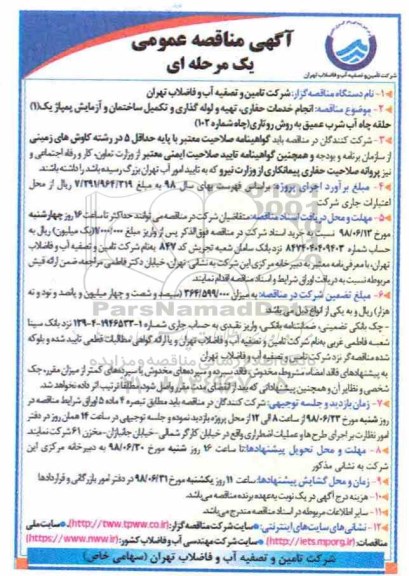 آگهی مناقصه عمومی
یک مرحله ای
شرکت تامین و تصفیه آب و فاضلاب تهران
۱- نام دستگاه مناقصه گزار: شرکت تامین و تصفیه آب و فاضلاب تهران
۲- موضوع مناقصه: انجام خدمات حفاری، تهیه و لوله گذاری و تکمیل ساختمان و آزمایش پمپاژ یک(۱)
حلقه چاه آب شرب عمیق به روش روتاری(چاه شماره ۱۰۲)
۳- شرکت کنندگان در مناقصه باید گواهینامه صلاحیت معتبر با پایه حداقل ۵ در رشته کاوش های زمینی
از سازمان برنامه و بودجه و همچنین گواهینامه تایید صلاحیت ایمنی معتبر از وزارت تعاون، کار و رفاه اجتماعی و
نیز پروانه صلاحیت حفاری پیمانکاری از وزارت نیرو که به تایید امور آب تهران بزرگ رسیده باشد را داشته باشند.
۴- مبلغ برآورد اجرای پروژه براساس فهرست بهای سال ۹۸ به مبلغ ۷/۲۹۱/۹۶۴/۳۱۹ ریال از محل
اعتبارات جاری شرکت
۵- مهلت و محل دریافت اسناد مناقصه: متقاضیان شرکت در مناقصه می توانند حداکثر تا ساعت ۱۶ روز چهارشنبه
مورخ ۹۸/۰۶/۱۳ نسبت به خرید اسناد شرکت در مناقصه فوق الذکر پس از واریز مبلغ ۱/۰۰۰/۰۰۰(یک میلیون) ریال به
حساب شماره ۸۴۷۴۰۴۰۴۰۹۴۰۳ نزد بانک سامان شعبه تجریش کد ۸۴۷ به نام شرکت تامین و تصفیه آب و فاضلاب
تهران، با معرفی نامه معتبر به دبیرخانه مرکزی این شرکت به نشانی تهران، خیابان دکتر فاطمی مراجعه، ضمن ارائه فیش
مربوطه نسبت به دریافت اوراق شرایط و اسناد مناقصه اقدام نمایند.
۶- مبلغ تضمین شرکت در مناقصه: به میزان ۳۶۴/۵۹۹/۰۰۰ (سیصد و شصت و چهار میلیون و پانصد و نود و نه
هزار) ریال و به یکی از انواع ذیل می باشد:
- چک بانکی تضمینی، ضمانتنامه بانکی، واریز نقدی به حساب جاری شماره نزد بانک سینا
شعبه فاطمی غربی به نام شرکت تامین و تصفیه آب و فاضلاب تهران و یا ارائه گواهی مطالبات قطعی تایید شده و بلوکه
شده مناقصه گر نزد شرکت تامین و تصفیه آب و فاضلاب تهران
به پیشنهادهای فاقد امضاء، مشروط، مخدوش، فاقد سپرده و سپرده های مخدوش یا سپرده های کمتر از میزان مقرر، چک
شخصی و نظایر آن و همچنین پیشنهاداتی که بعد از انقضای مدت مقرر واصل شود، مطلقا ترتیب اثر داده نخواهد شد.
۷- زمان بازدید و جلسه توجیهی: شرکت کنندگان در مناقصه باید مطابق تبصره ۴ ماده ۵ اوراق شرایط مناقصه در
روز شنبه مورخ ۹۸/۰۶/۲۳ از ساعت ۸ الی ۱۲ از محل پروژه بازدید نموده و جلسه توجیهی در ساعت ۱۴ همان روز در دفتر
امور نظارت بر اجرای طرح ها و عملیات اضطراری واقع در خیابان کارگر شمالی - خیابان جانبازان - مخزن ۶۱ شرکت نمایند.
۸- مهلت و محل تحویل پیشنهادها: تا ساعت ۱۶ روز شنبه مورخ ۹۸/۰۶/۳۰ به دبیرخانه مرکزی این
شرکت به نشانی مذکور
۹- زمان و محل گشایش پیشنهادها: ساعت ۱۱ روز یکشنبه مورخ ۹۸/۰۶/۳۱ در دفتر امور بازرگانی و قراردادها
۱۰- هزینه درج آگهی در یک نوبت به عهده برنده مناقصه می باشد.
۱۱- سایر اطلاعات مربوطه در اسناد مناقصه مندرج می باشد.
۱۲- نشانی های سایت های اینترنتی: - سایت شرکت مناقصه گزار: (http://tww.tpww.co.ir)، سایت ملی
مناقصات: (http://iets.mporg.ir) - سایت شرکت مهندسی آب و فاضلاب کشور: (https://www.nww.ir)
شرکت تامین و تصفیه آب و فاضلاب تهران (سهامی خاص)
ParsNamadData